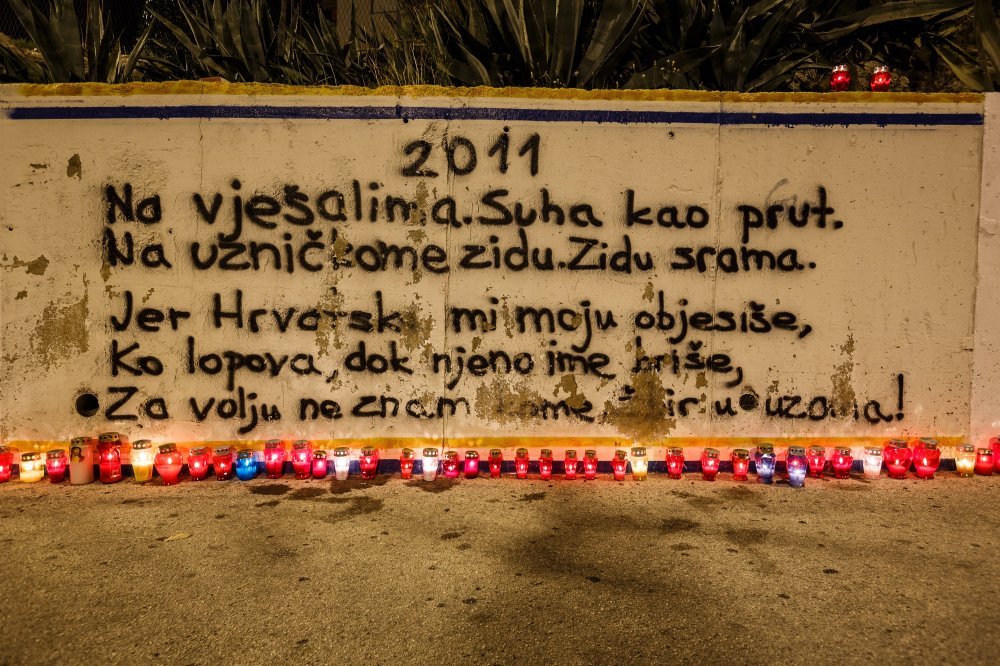 2011
Na vješalima. Suha kao prut.
Na uzničkome zidu. Zidu srama.
Jer Hrvatsku mi moju objesiše,
Ko lopova, dok njeno ime briše,
Za volju ne znam kome, žmir u uzoma!